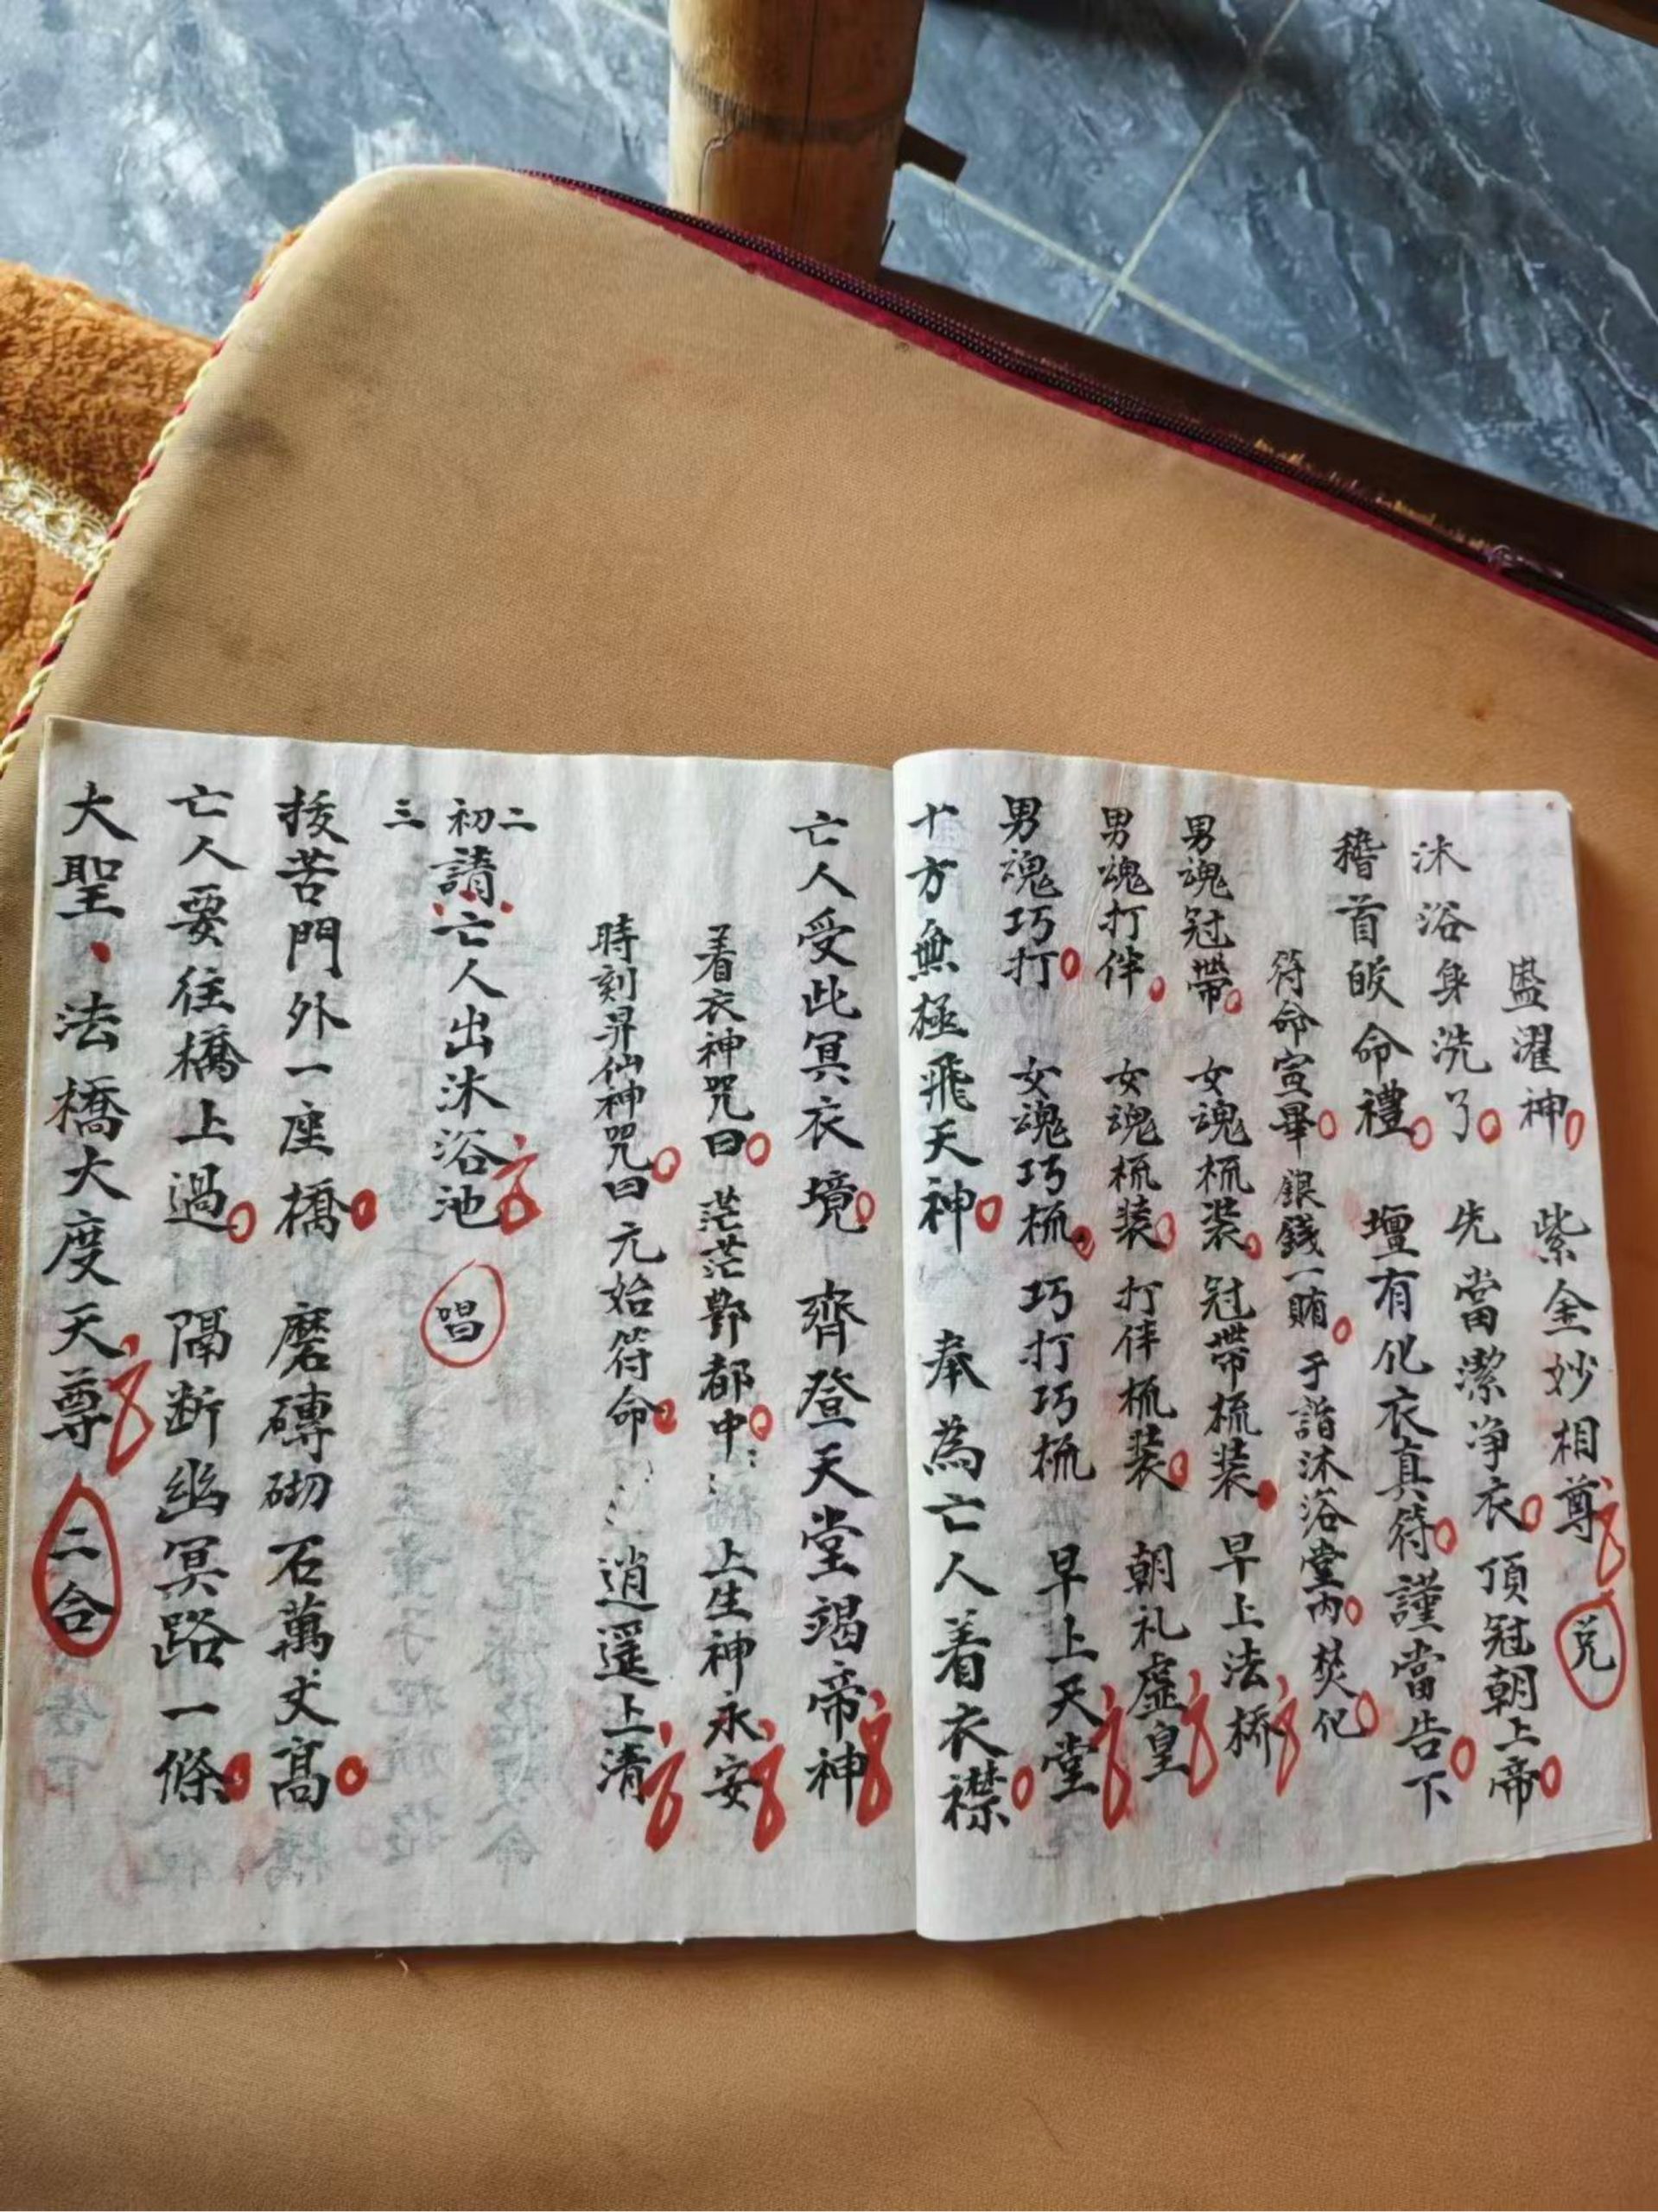 盥濯神 紫金妙相尊 兑
沐浴身洗了 先當潔净衣 頂冠朝上帝
稽首皈命禮 壇有化衣真符 謹當告下
符命宣畢 銀錢一賄 于詣沐浴堂内 焚化
男魂冠帶 女魂梳装 冠帶梳装 早上法橋
男魂打伴 女魂梳装 打伴梳装 朝礼虚皇
男魂巧打 女魂巧梳 巧打巧梳 早上天堂
十方無極飛天神 奉為亡人着衣襟
亡人受此冥衣境 齊登天堂謁帝神
着衣神咒曰 茫茫酆都中 上生神永安
時刻昇仙神咒曰 元始符命 逍遥上清
初二三請亡人出沐浴池 唱
拔苦門外一座橋 磨磚砌石萬丈高
亡人要往橋上過 隔断幽冥路一條
大聖、法橋大度天尊 二合